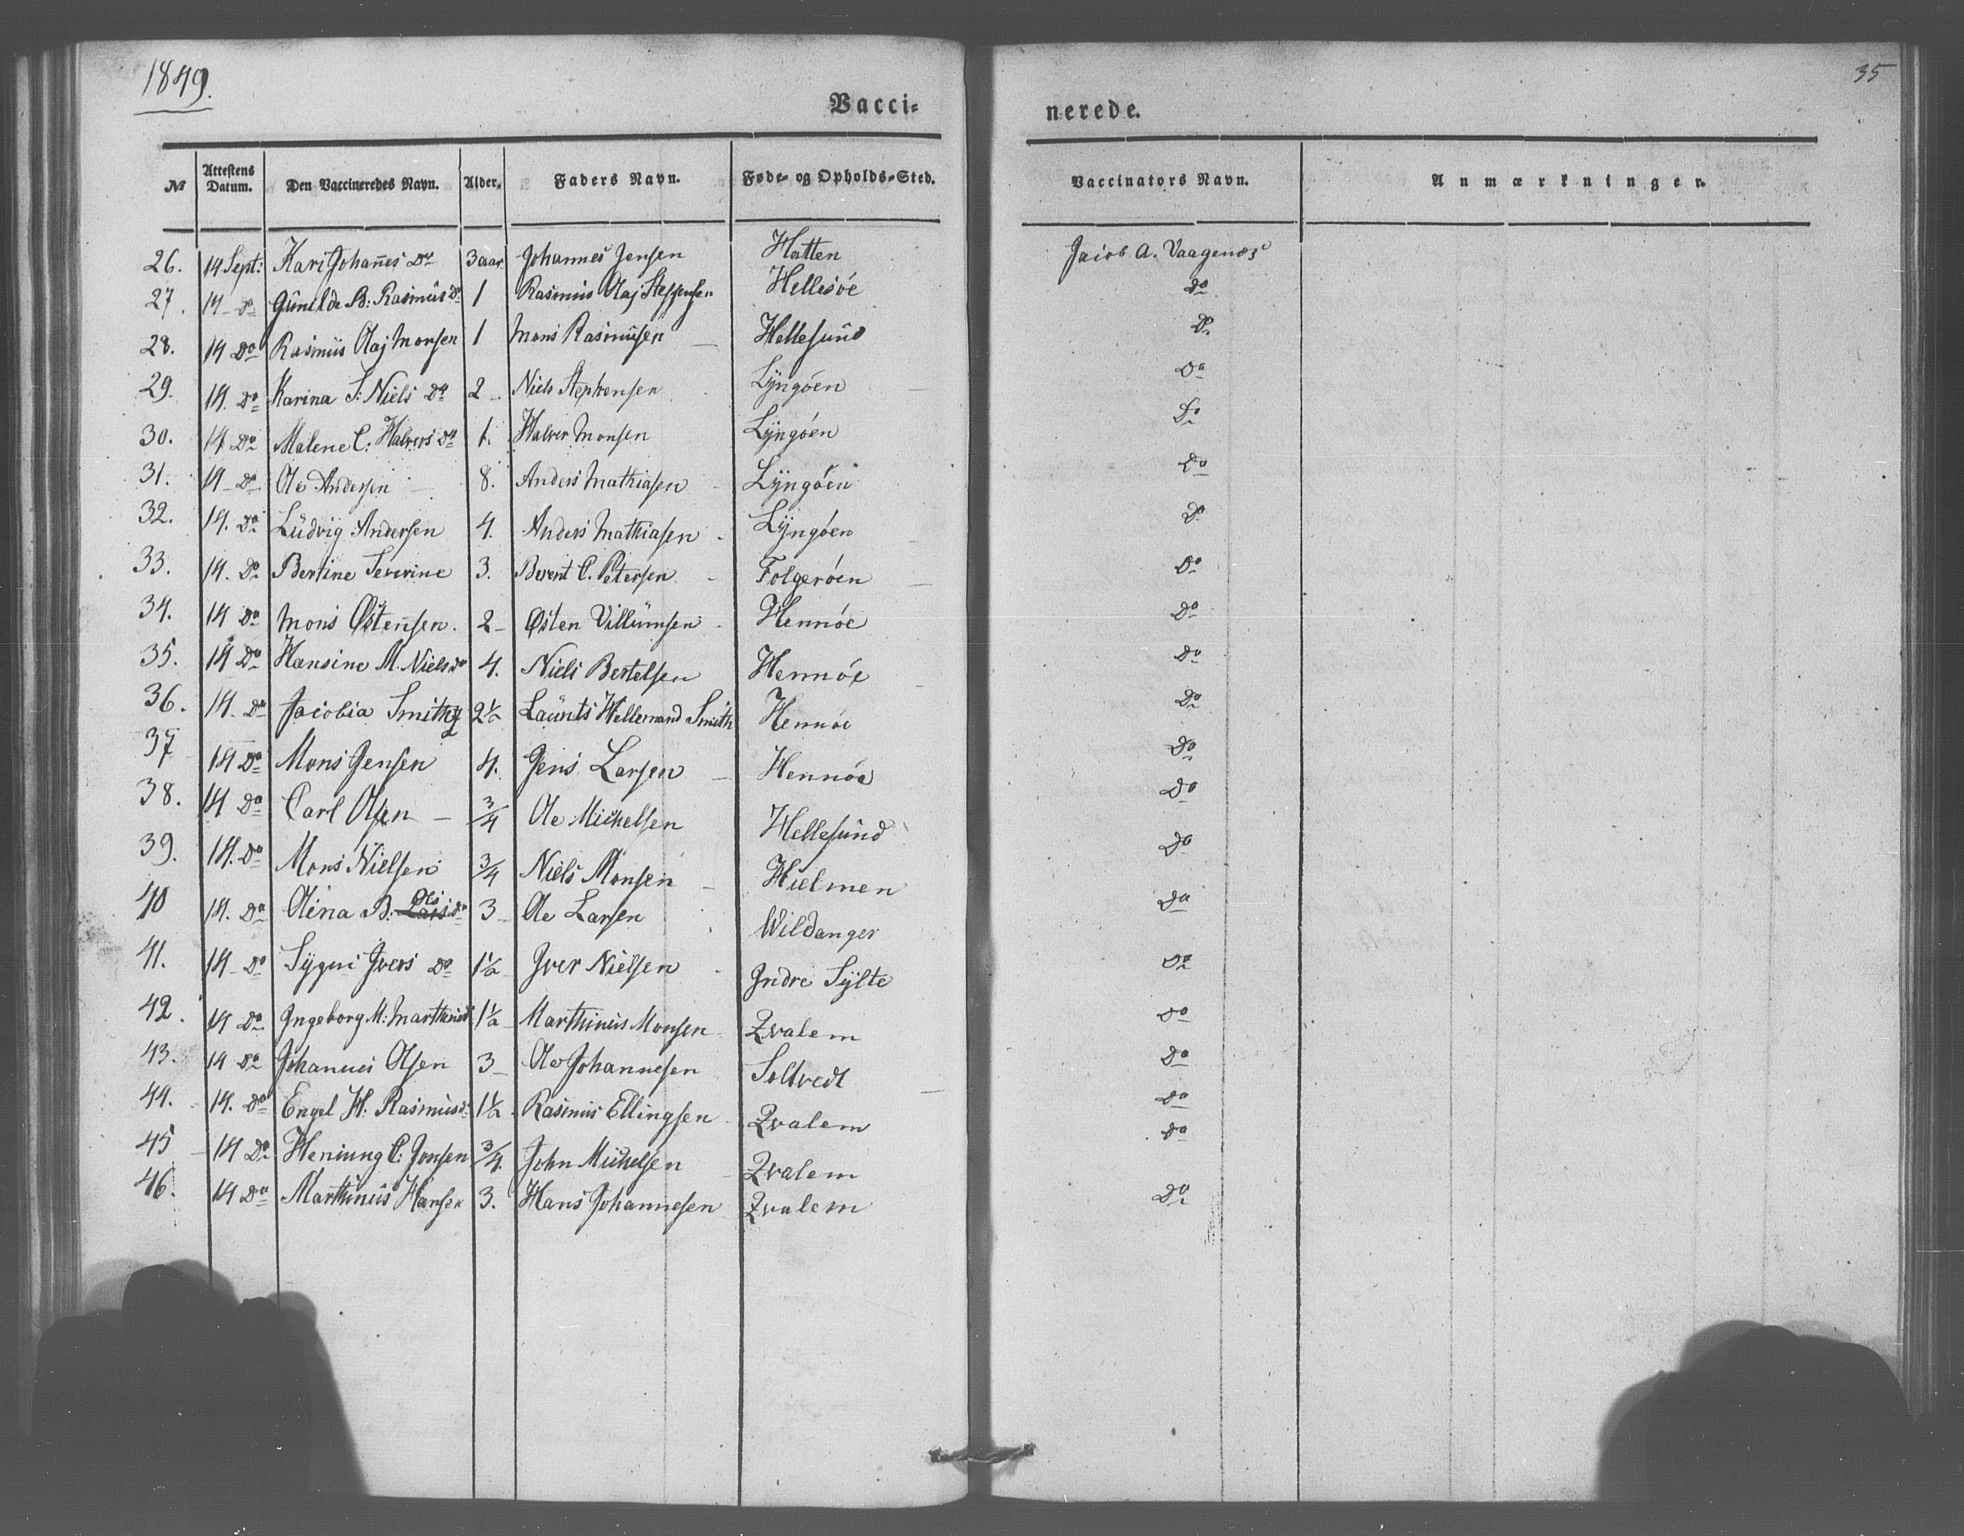 1849.
35
Vacci=
nerede.
№ Attestens Datum. Den Vaccineredes Navn. Alder. Faders Navn. Føde- og Opholds-Sted. Vaccinators Navn. Anmærkninger.
26. 14 Sept: Kari Johannes Dr 3 aar Johannes Jensen Hatten Jacob A. Vaagenæs
27. 14 Do Gunilde B: Rasmus Dr 1 Rasmus Olaj Steffensen Hellesøe Do
28. 14 Do Rasmus Olaj Monsen 1 Mons Rasmusen Hellesund Do
29. 14. Do Karina S: Niels Dr 2 Niels Stephensen Lyngøen Do
30. 14 Do Malene C: Halvers Dr 1. Halver Monsen Lyngøen Do
31. 14 Do Ole Andersen 8. Anders Mathiasen Lyngøen Do
32. 14. Do Ludvig Andersen 4. Anders Mathiasen Lyngøen Do
33. 14. Do Bertine Severine 3. Berent C. Petersen Folgerøen Do
34. 14 Do Mons Østensen. 2 Østen Villumsen Hennøe Do
35. 14 Do Hansine M. Niels Dr 4. Niels Bertelsen Hennøe Do
36. 14 Do Jacobia Smith 2½ Launts Hellesund Smith Hennøe Do
37 14 Do Mons Jensen 4. Jens Larsen Hennøe Do
38. 14 Do Carl Olsen 3/4 Ole Michelsen Hellesund Do
39. 14. Do Mons Nielsen 3/4 Niels Monsen Hielmen Do
40 14. Do Olina B: Ols Lars Dr 3 Ole Larsen Wildanger Do
41. 14 Do Sygni Ivers Do 1½ Iver Nielsen Indre Sylte Do
42. 14 Do Ingeborg M: Marthinusd 1½ Marthinus Monsen Qvalem Do
43. 14 Do Johannes Olsen 3 Ole Johannesen Soltvedt Do
44. 14. Do Engel H. Rasmusd: 1½ Rasmus Ellingsen Qvalem Do
45 14 Do Henning C: Jonsen 3/4. John Michelsen Qvalem Do
46. 14 Do Marthinus Hansen 3. Hans Johannesen Qvalem Do
1849.